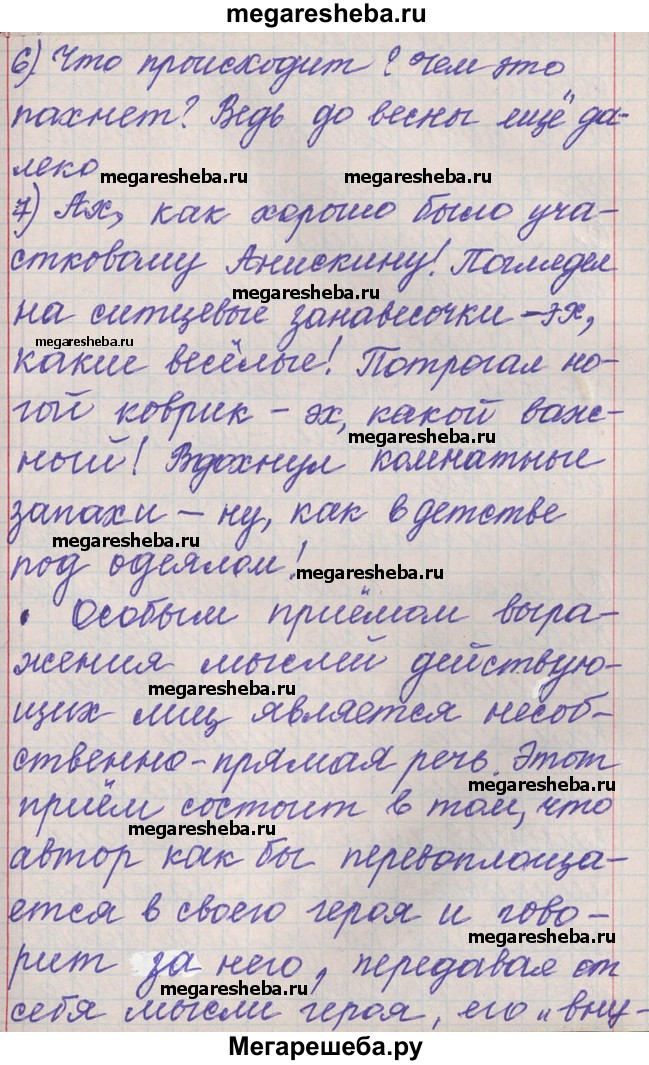 megaresheba.ru
6) Что происходит? Чем это
пахнет? Ведь до весны ещё да-
леко
megaresheba.ru megaresheba.ru
7) Ах, как хорошо было уча-
стковому Анискину! Поглядел
megaresheba.ru
на ситцевые занавесочки – эх,
megaresheba.ru
какие весёлые! Потрогал но-
гой коврик – эх, какой важ-
megaresheba.ru
ный! Вдохнул комнатные
запахи – ну, как в детстве
megaresheba.ru
под одеялом!
megaresheba.ru
• Особым приёмом выра-
жения мыслей действую-
megaresheba.ru
щих лиц является несоб-
ственно-прямая речь. Этот
megaresheba.ru
приём состоит в том, что
megaresheba.ru
автор как бы перевоплоща-
ется в своего героя и гово-
megaresheba.ru
рит за него, передавая от
себя мысли героя, его „вну-
Мегарешеба.ру